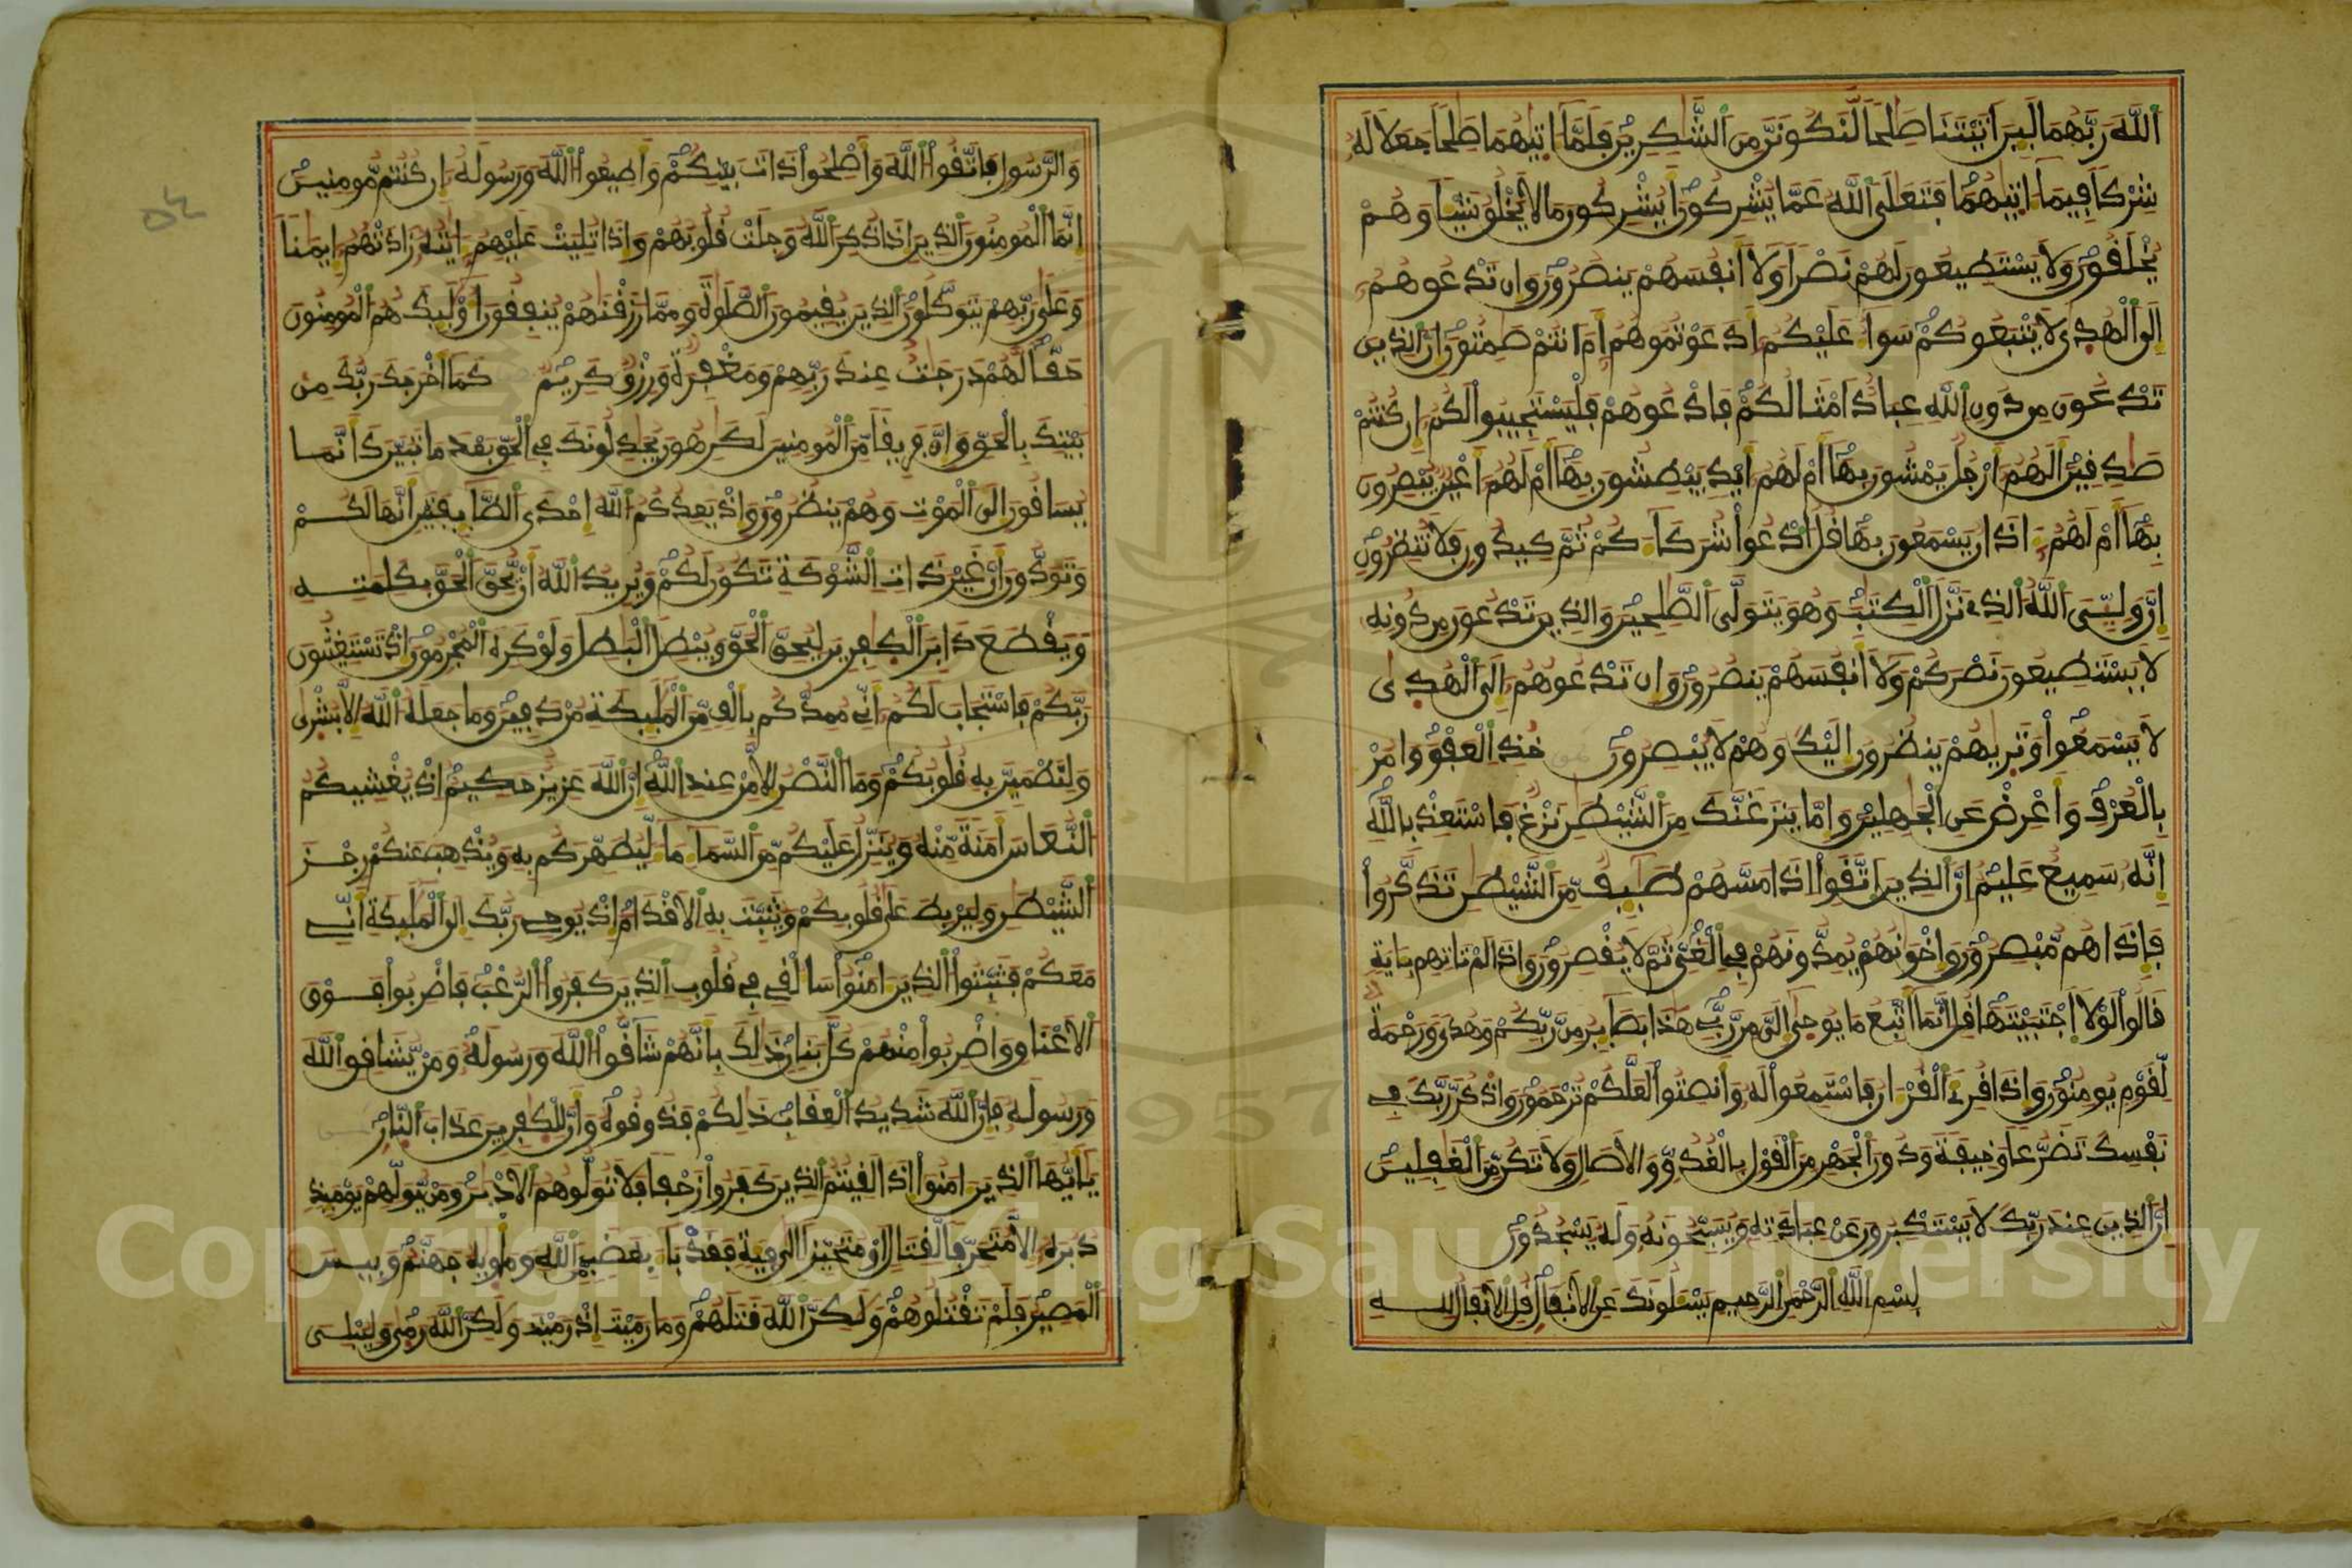 الله ربهما لين اتيتنا صلحا لنكونن من الشكرين فلما اتيهما صلحا جعلا له
شركا فيما اتيهما فتعلى الله عما يشركون ايشركون ما لا يخلق شيا وهم
يخلقون ولا يستطيعون لهم نصرا ولا انفسهم ينصرون وان تدعوهم
الى الهدى لا يتبعوكم سوا عليكم ادعوتموهم ام انتم صمتون ان الذين
تدعون من دون الله عباد امثالكم فادعوهم فليستجيبوا لكم ان كنتم
صدفين الهم ارجل يمشون بها ام لهم ايد يبطشون بها ام لهم اعين يبصرون
بها ام لهم اذان يسمعون بها فل ادعوا شركاكم ثم كيدون فلا تنظرون
ان وليي الله الذي نزل الكتب وهو يتولى الصلحين والذين تدعون من دونه
لا يستطيعون نصركم ولا انفسهم ينصرون وان تدعوهم الى الهدى
لا يسمعوا وتريهم ينظرون اليك وهم لا يبصرون خذ العفو وامر
بالعرف واعرض عن الجهلين واما ينزغنك من الشيطن نزغ فاستعذ بالله
انه سميع عليم ان الذين اتقوا اذا مسهم طيف من الشيطن تذكروا
فاذا هم مبصرون واخونهم يمدونهم في الغي ثم لا يفصرون واذا لم تاتهم باية
قالوا لولا اجتبيتها قل انما اتبع ما يوحى الي من ربي هذا بصاير من ربكم وهدى ورحمة
لقوم يومنون واذا قرئ القران فاستمعوا له وانصتوا لعلكم ترحمون واذكر ربك في
نفسك تضرعا وخيفة ودون الجهر من القول بالغدو والاصال ولا تكن من الغفلين
ان الذين عند ربك لا يستكبرون عن عبادته ويسبحونه وله يسجدون
بسم الله الرحمن الرحيم يسلونك عن الانفال قل الانفال لله
والرسول فاتقوا الله واصلحوا ذات بينكم واطيعوا الله ورسوله ان كنتم مومنين
انما المومنون الذين اذا ذكر الله وجلت قلوبهم واذا تليت عليهم ايته زادتهم ايمنا
وعلى ربهم يتوكلون الذين يقيمون الصلوة ومما رزقنهم ينفقون اوليك هم المومنون
حقا لهم درجت عند ربهم ومغفرة ورزق كريم كما اخرجك ربك من
بيتك بالحق وان فريقا من المومنين لكرهون يجدلونك في الحق بعد ما تبين كانما
يساقون الى الموت وهم ينظرون واذ يعدكم الله احدى الطايفتين انها لكم
وتودون ان غير ذات الشوكة تكون لكم ويريد الله ان يحق الحق بكلمته
ويقطع دابر الكفرين ليحق الحق ويبطل البطل ولو كره المجرمون اذ تستغيثون
ربكم فاستجاب لكم اني ممدكم بالف من المليكة مردفين وما جعله الله الا بشرى
ولتطمين به قلوبكم وما النصر الا من عند الله ان الله عزيز حكيم اذ يغشيكم
النعاس امنة منه وينزل عليكم من السما ما ليطهركم به ويذهب عنكم رجز
الشيطن وليربط على قلوبكم ويثبت به الاقدام اذ يوحي ربك الى المليكة اني
معكم فثبتوا الذين امنوا سالقي في قلوب الذين كفروا الرعب فاضربوا فوق
الاعناق واضربوا منهم كل بنان ذلك بانهم شاقوا الله ورسوله ومن يشاقق الله
ورسوله فان الله شديد العقاب ذلكم فذوقوه وان للكفرين عذاب النار
يايها الذين امنوا اذا لقيتم الذين كفروا زحفا فلا تولوهم الادبر ومن يولهم يوميذ
دبره الا متحرفا لقتال او متحيزا الى فية فقد با بغضب من الله وماويه جهنم وبيس
المصير فلم تقتلوهم ولكن الله قتلهم وما رميت اذ رميت ولكن الله رمى وليبلي
Copyright © King Saud University
1957